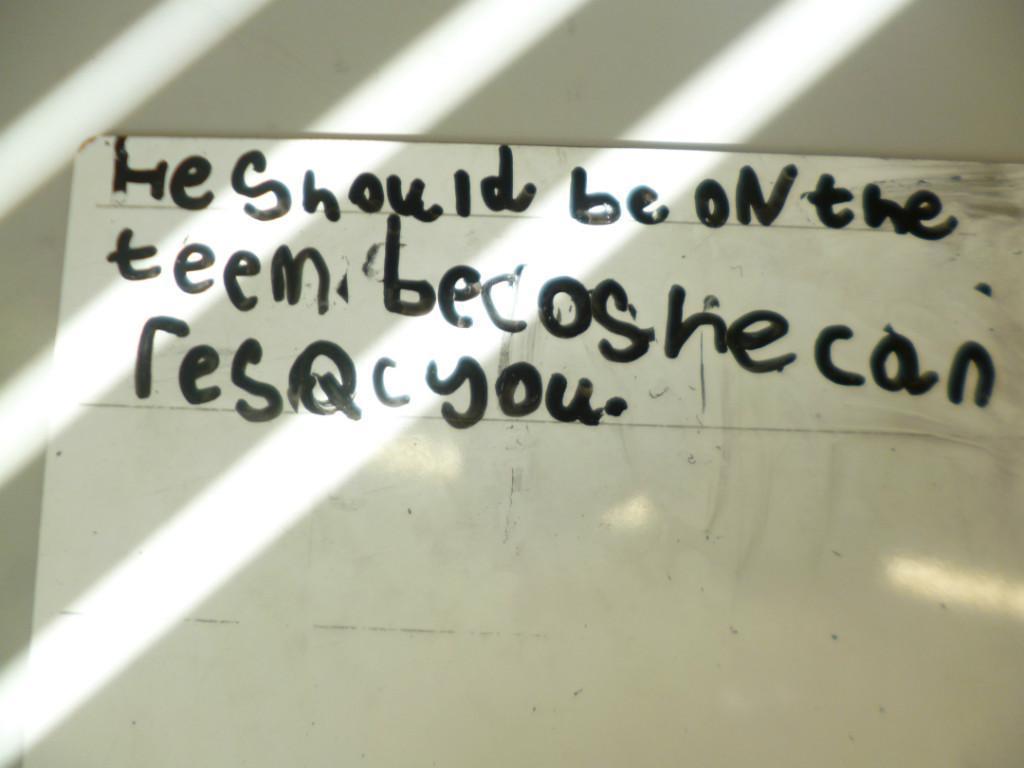 He should be oN the
teem. becos he can
resQc you.